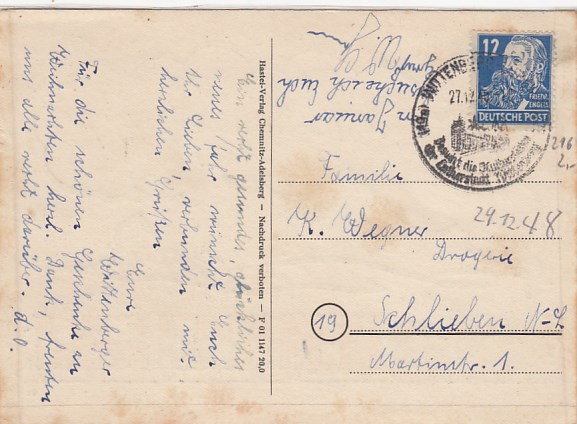 Ein recht gesundes, glückliches
neues Jahr wünscht Euch
Ihr Lieben, verbunden mit
herzlichen Grüßen
Eure
Wittenberger
Für die schönen Geschenke zu
Weihnachten herzl. Dank, freuten
uns alle recht darüber. D. O.
Hastei-Verlag Chemnitz-Adelsberg — Nachdruck verboten — F 01 1147 20,0
In Januar
besuche ich Euch
Gruß
12
FRIEDR.
ENGELS
DEUTSCHE POST
WITTENBERG
27.12.
Besucht die
der Lutherstadt
29.12.48
Familie
K. Wegner
Drogerie
19
Schlieben N-L
Martinstr. 1.